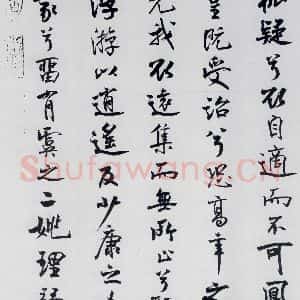 狐疑兮欲自適而不可鳳
皇既受詒兮恐高辛之
先我欲遠集而無所止兮
浮游以逍遙及少康之
家兮留有虞之二姚理
Shufawang.cn